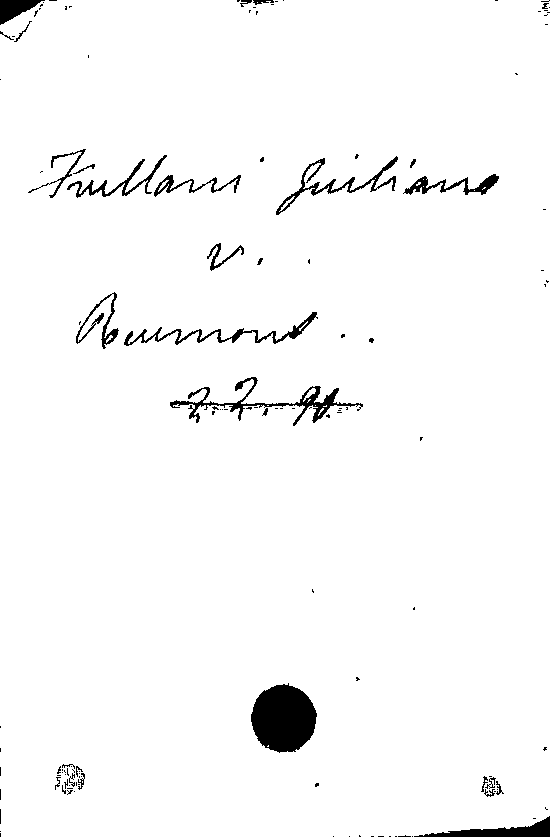 Frullani Giuliano
v.
Reumont..
2.2.90.